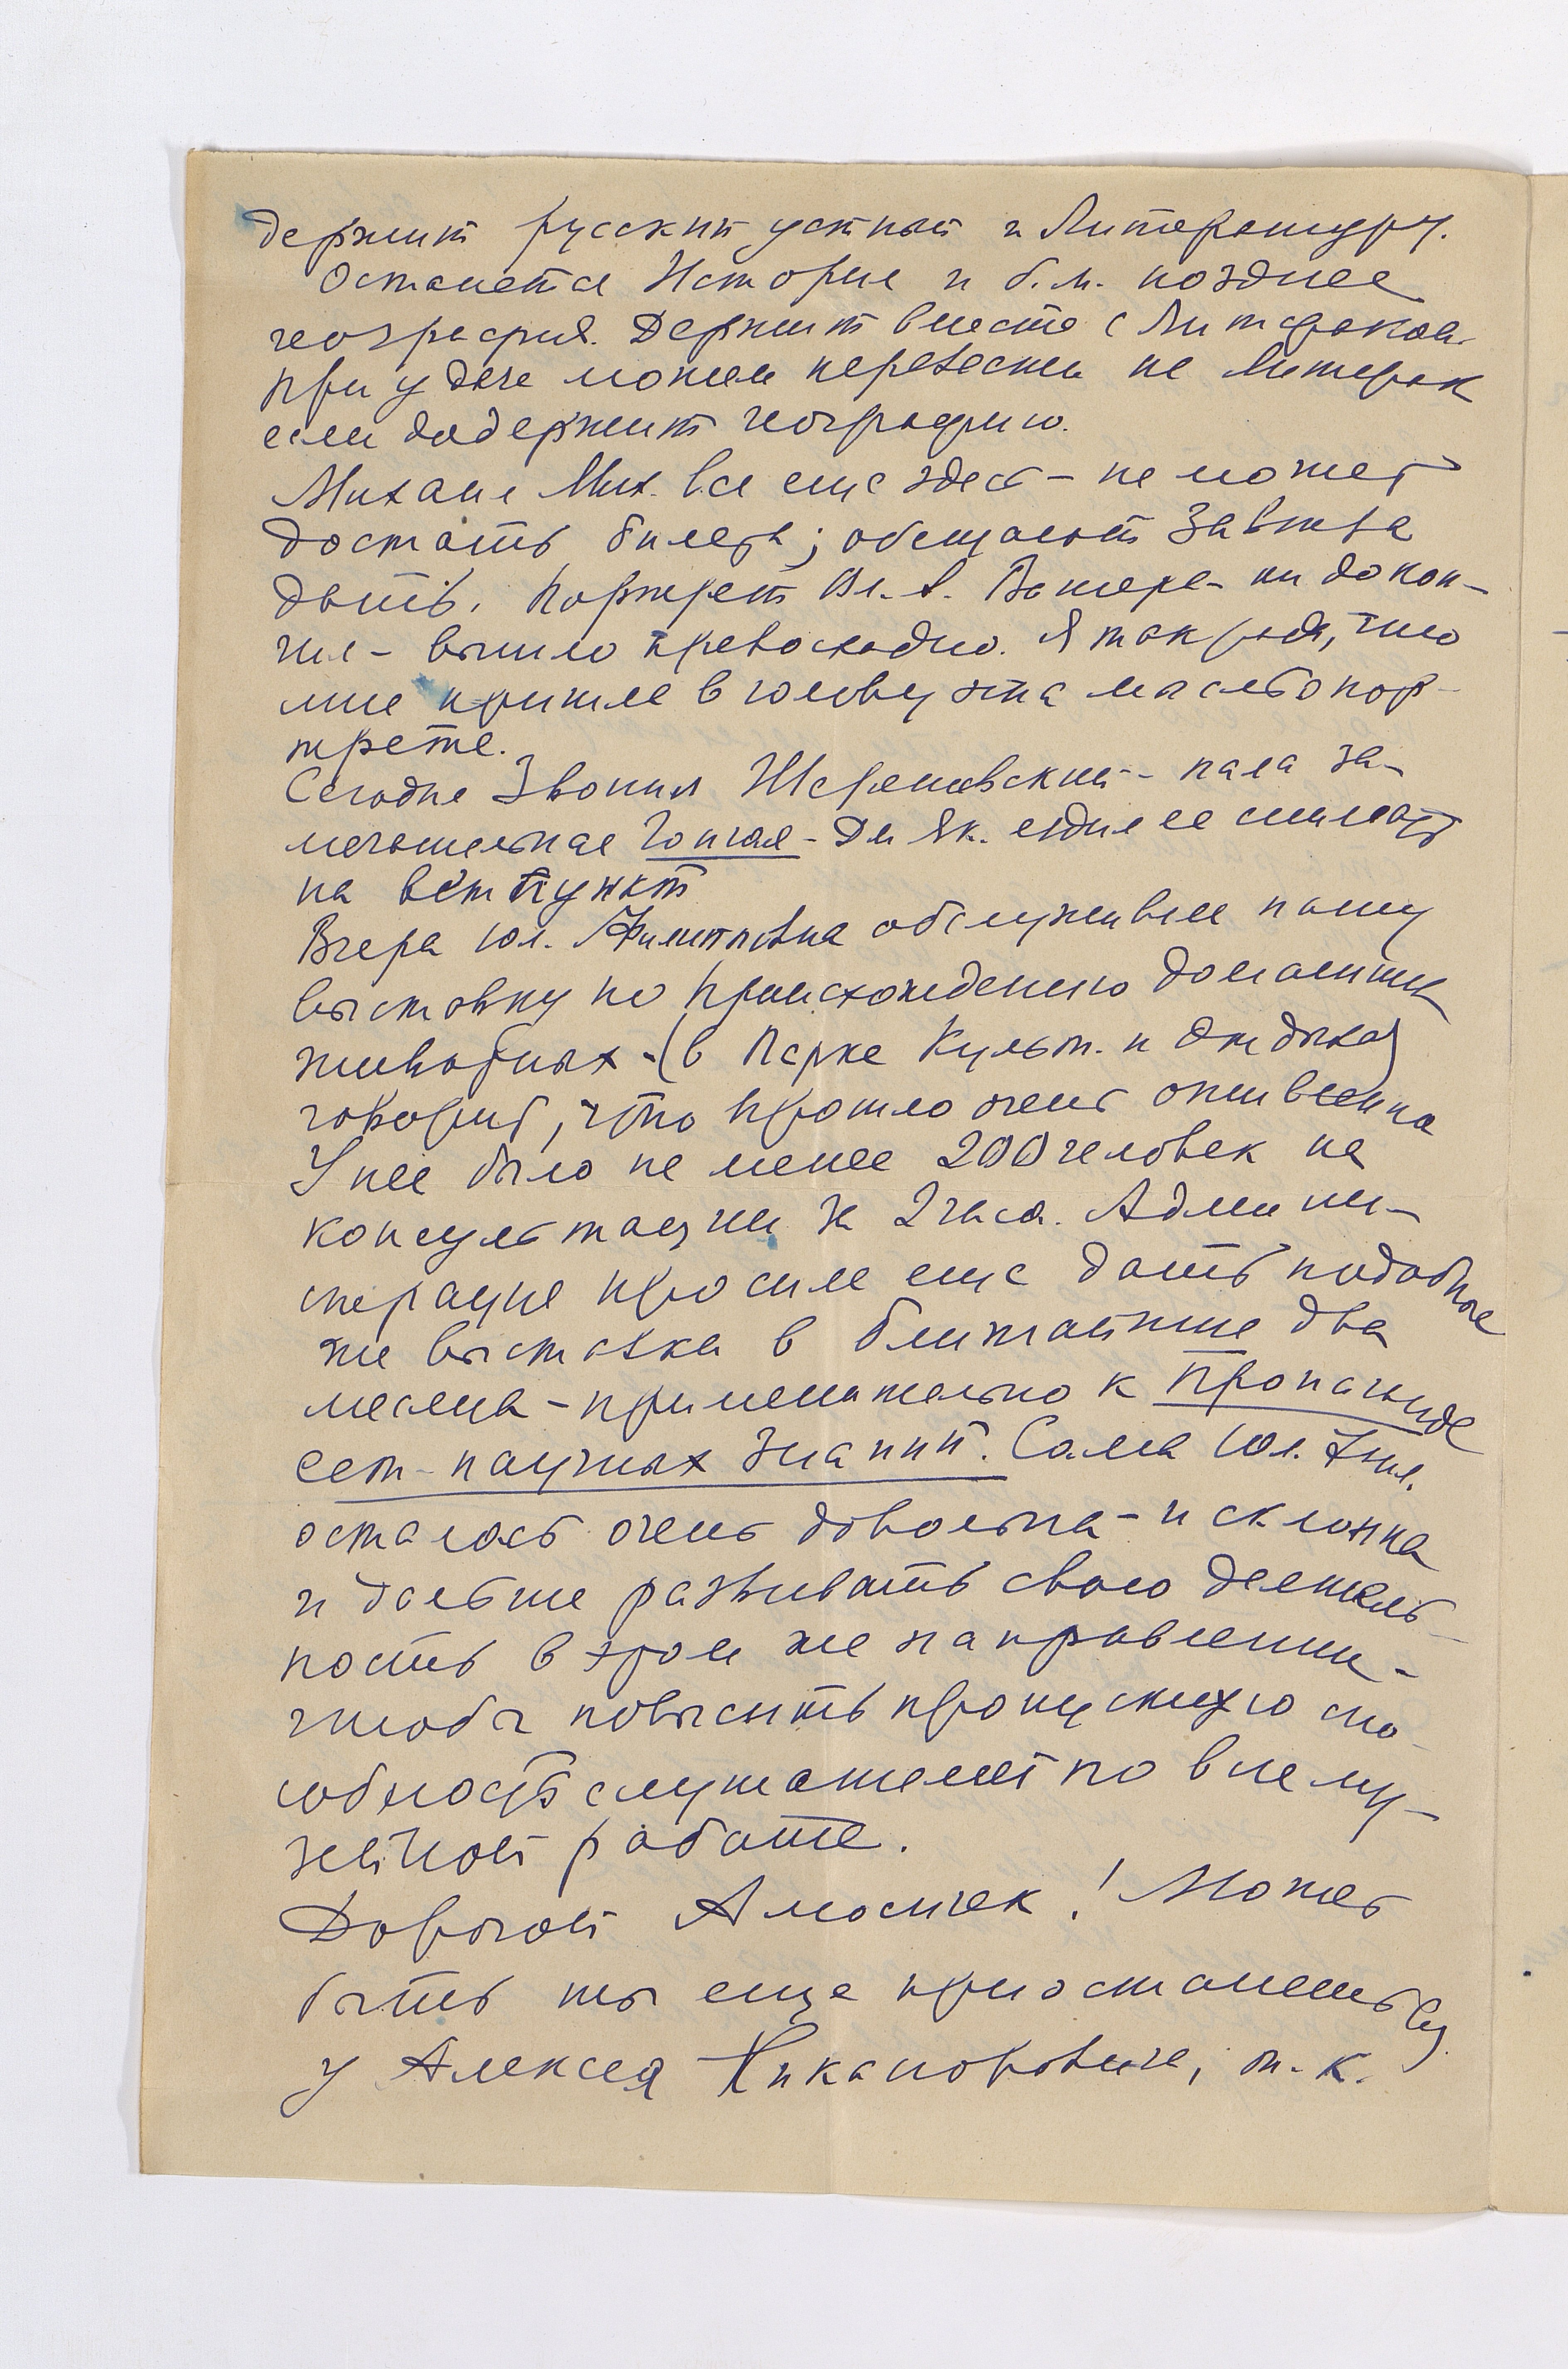 держит русский устный и Литературу.
Останется История и б.м. позднее
география. Держит вместе с Литфаком.
При удаче можем перевести на Литфак
если додержит географию.
Михаил Мих. все еще здесь – не может
достать билета; обещают завтра
дать. Портрет Вл. А. Ватаг. он докон-
чил – вышло превосходно. Я так рада, что
мне пришла в голову эта мысль о пор-
трете.
Сегодня Звонил – пала за-
мечательная гончая – Дм Як. ездил ее снимать
на ветпункт
Вчера Юл. Филипповна обслуживала нашу
выставку по Происхождению домашних
животных – (в Парке Культ. и Отдыха)
говорит, что прошло очень оживленно
У нее было не менее 200 человек на
консультации за 2 часа. Админи-
страция просила еще дать подобные
же выставки в ближайшие два
месяца – применительно к Пропаганде
ест-научных знаний. Сама Юл. Фил.
осталась очень довольна – и склонна
и дальше развивать свою деятель-
ность в этом же направлении –
чтобы повысить пропускную спо-
собность слушателей по внему-
зейной работе.
Дорогой Амосичек! Может
быть ты еще приостанешься
у Алексея Никаноровича, т.к.